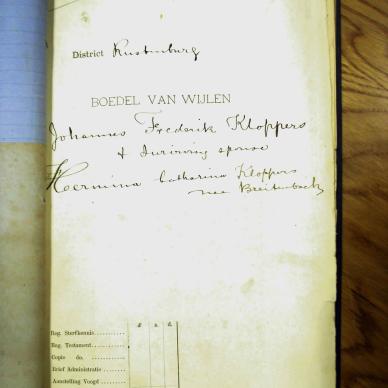 District Rustenburg
BOEDEL VAN WIJLEN
Johannes Frederik Kloppers
& Surviving spouse
Hermina Catharina Kloppers
nee Breitenbach
£ s. d.
Reg. Sterfkennis
Reg. Testament
Copie do.
Brief Administratie
Aanstelling Voogd